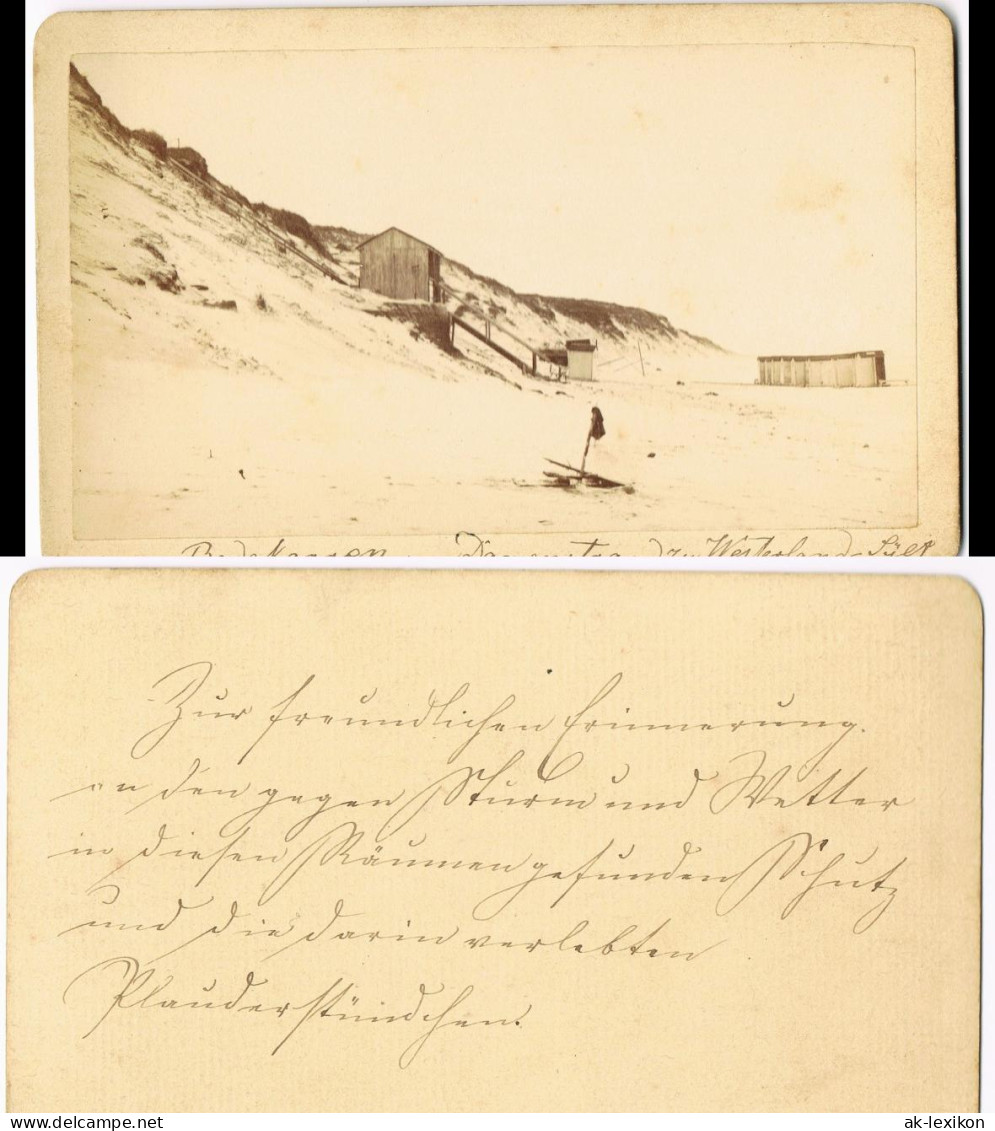 Badekarren Damenstrand zu Westerland Sylt
Zur freundlichen Erinnerung
an den gegen Sturm und Wetter
in diesen Räumen gefunden Schutz
und die darin verlebten
Plauderstündchen.
www.delcampe.net
ak-lexikon